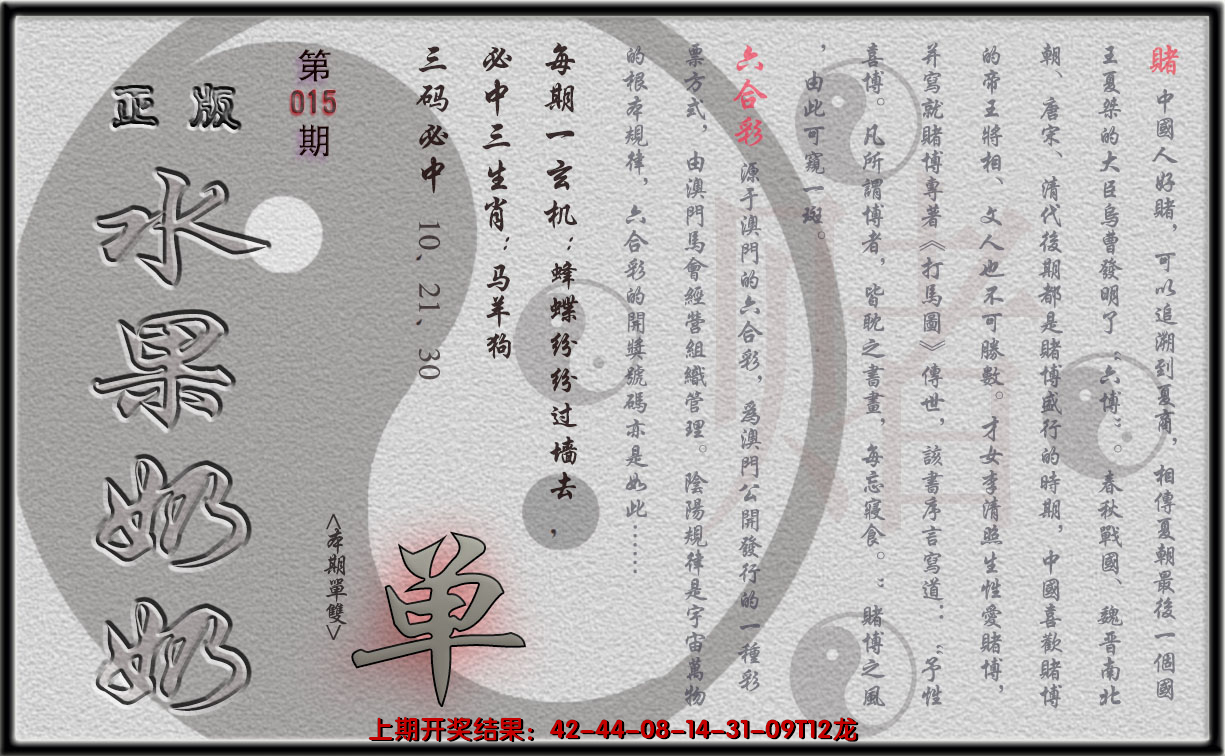 賭 中國人好賭，可以追溯到夏商，相傳夏朝最後一個國
王夏桀的大臣烏曹發明了“六博”。春秋戰國、魏晋南北
朝、唐宋、清代後期都是賭博盛行的時期，中國喜歡賭博
的帝王將相、文人也不可勝數。才女李清照生性愛賭博，
并寫就賭博專著《打馬圖》傳世，該書序言寫道：“予性
喜博。凡所謂博者，皆耽之書畫，每忘寢食。”賭博之風
，由此可窺一斑。
六合彩 源于澳門的六合彩，爲澳門公開發行的一種彩
票方式，由澳門馬會經營組織管理。陰陽規律是宇宙萬物
的根本規律，六合彩的開獎號碼亦是如此……
每期一玄机：蜂蝶纷纷过墙去，
必中三生肖：马羊狗
三码必中 10、21、30
第
015
期
<本期單雙>
单
正版
水果奶奶
賭
上期开奖结果：42-44-08-14-31-09T12龙